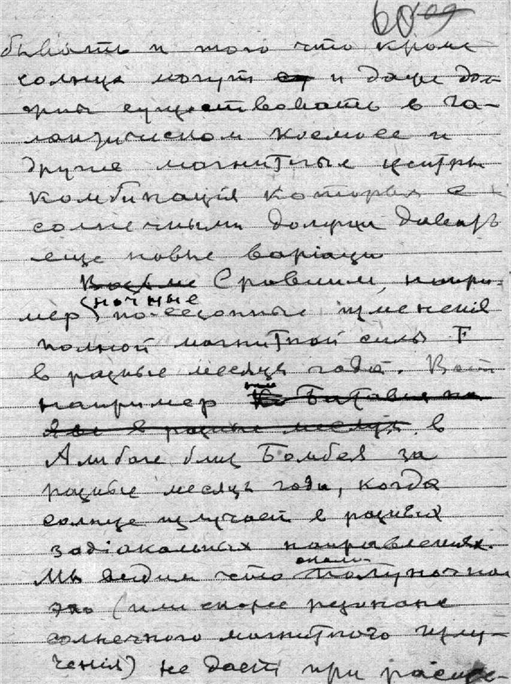 60
бывать и того что кроме
солнца могут и даже дол-
жны существовать в га-
лактическом космосе и
другие магнитные центры
комбинація которых с
солнечными должна давать
еще новые варіаціи
Сравним, напри-
мер ночные по-сезонные измененія
полной магнитной силы F
в разные месяцы года. Вот
например Батавия на
Яве в разные месяцы. в
Алибаге близ Бомбея за
разные месяцы года, когда
солнце излучает в разных
зодіакальных направлениях.
Мы видим что около полуночное
эхо (или скорее резонанс
солнечного магнитного излу-
ченія) не дает при